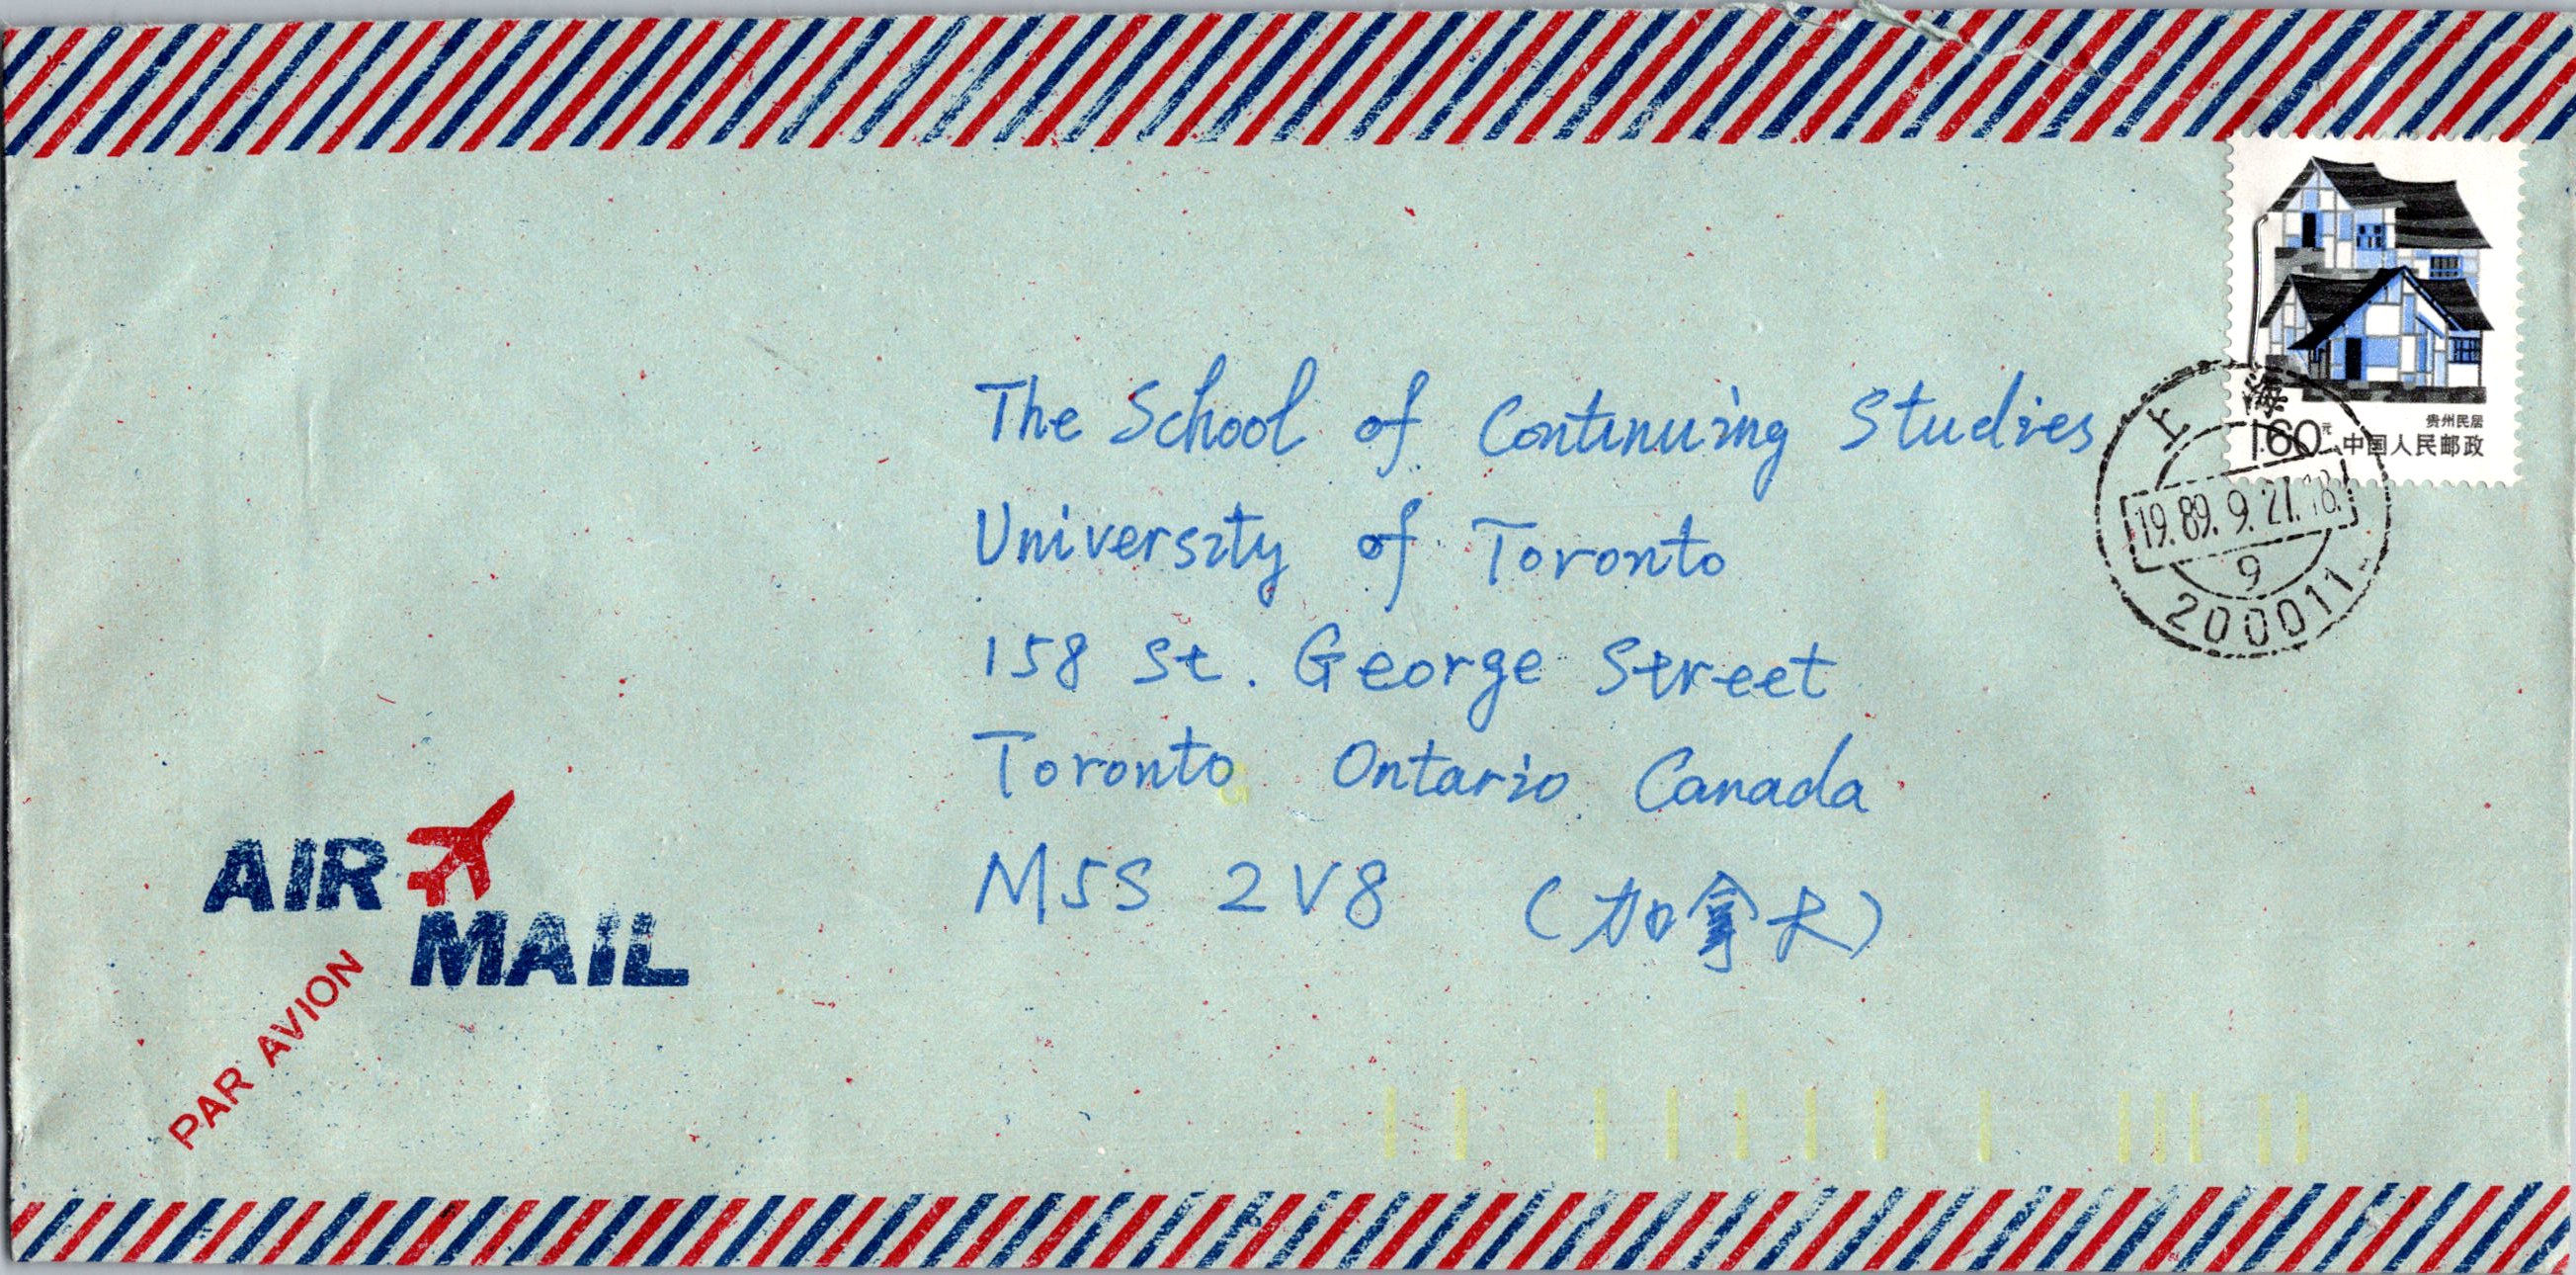 贵州民居
1.60元 中国人民邮政
上海
19.89.9.27.18.
9
200011
The School of Continuing Studies
University of Toronto
158 St. George Street
Toronto Ontario Canada
M5S 2V8 (加拿大)
AIR
MAIL
PAR AVION